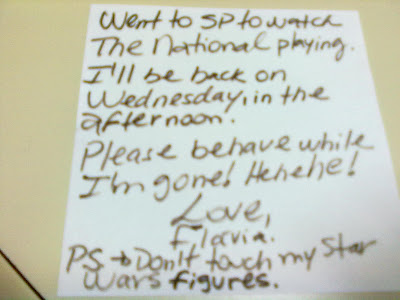 Went to SP to watch
The National playing.
I'll be back on
Wednesday, in the
afternoon.
Please behave while
I'm gone! Hehehe!
Love,
Flavia.
PS → Don't touch my Star
Wars figures.